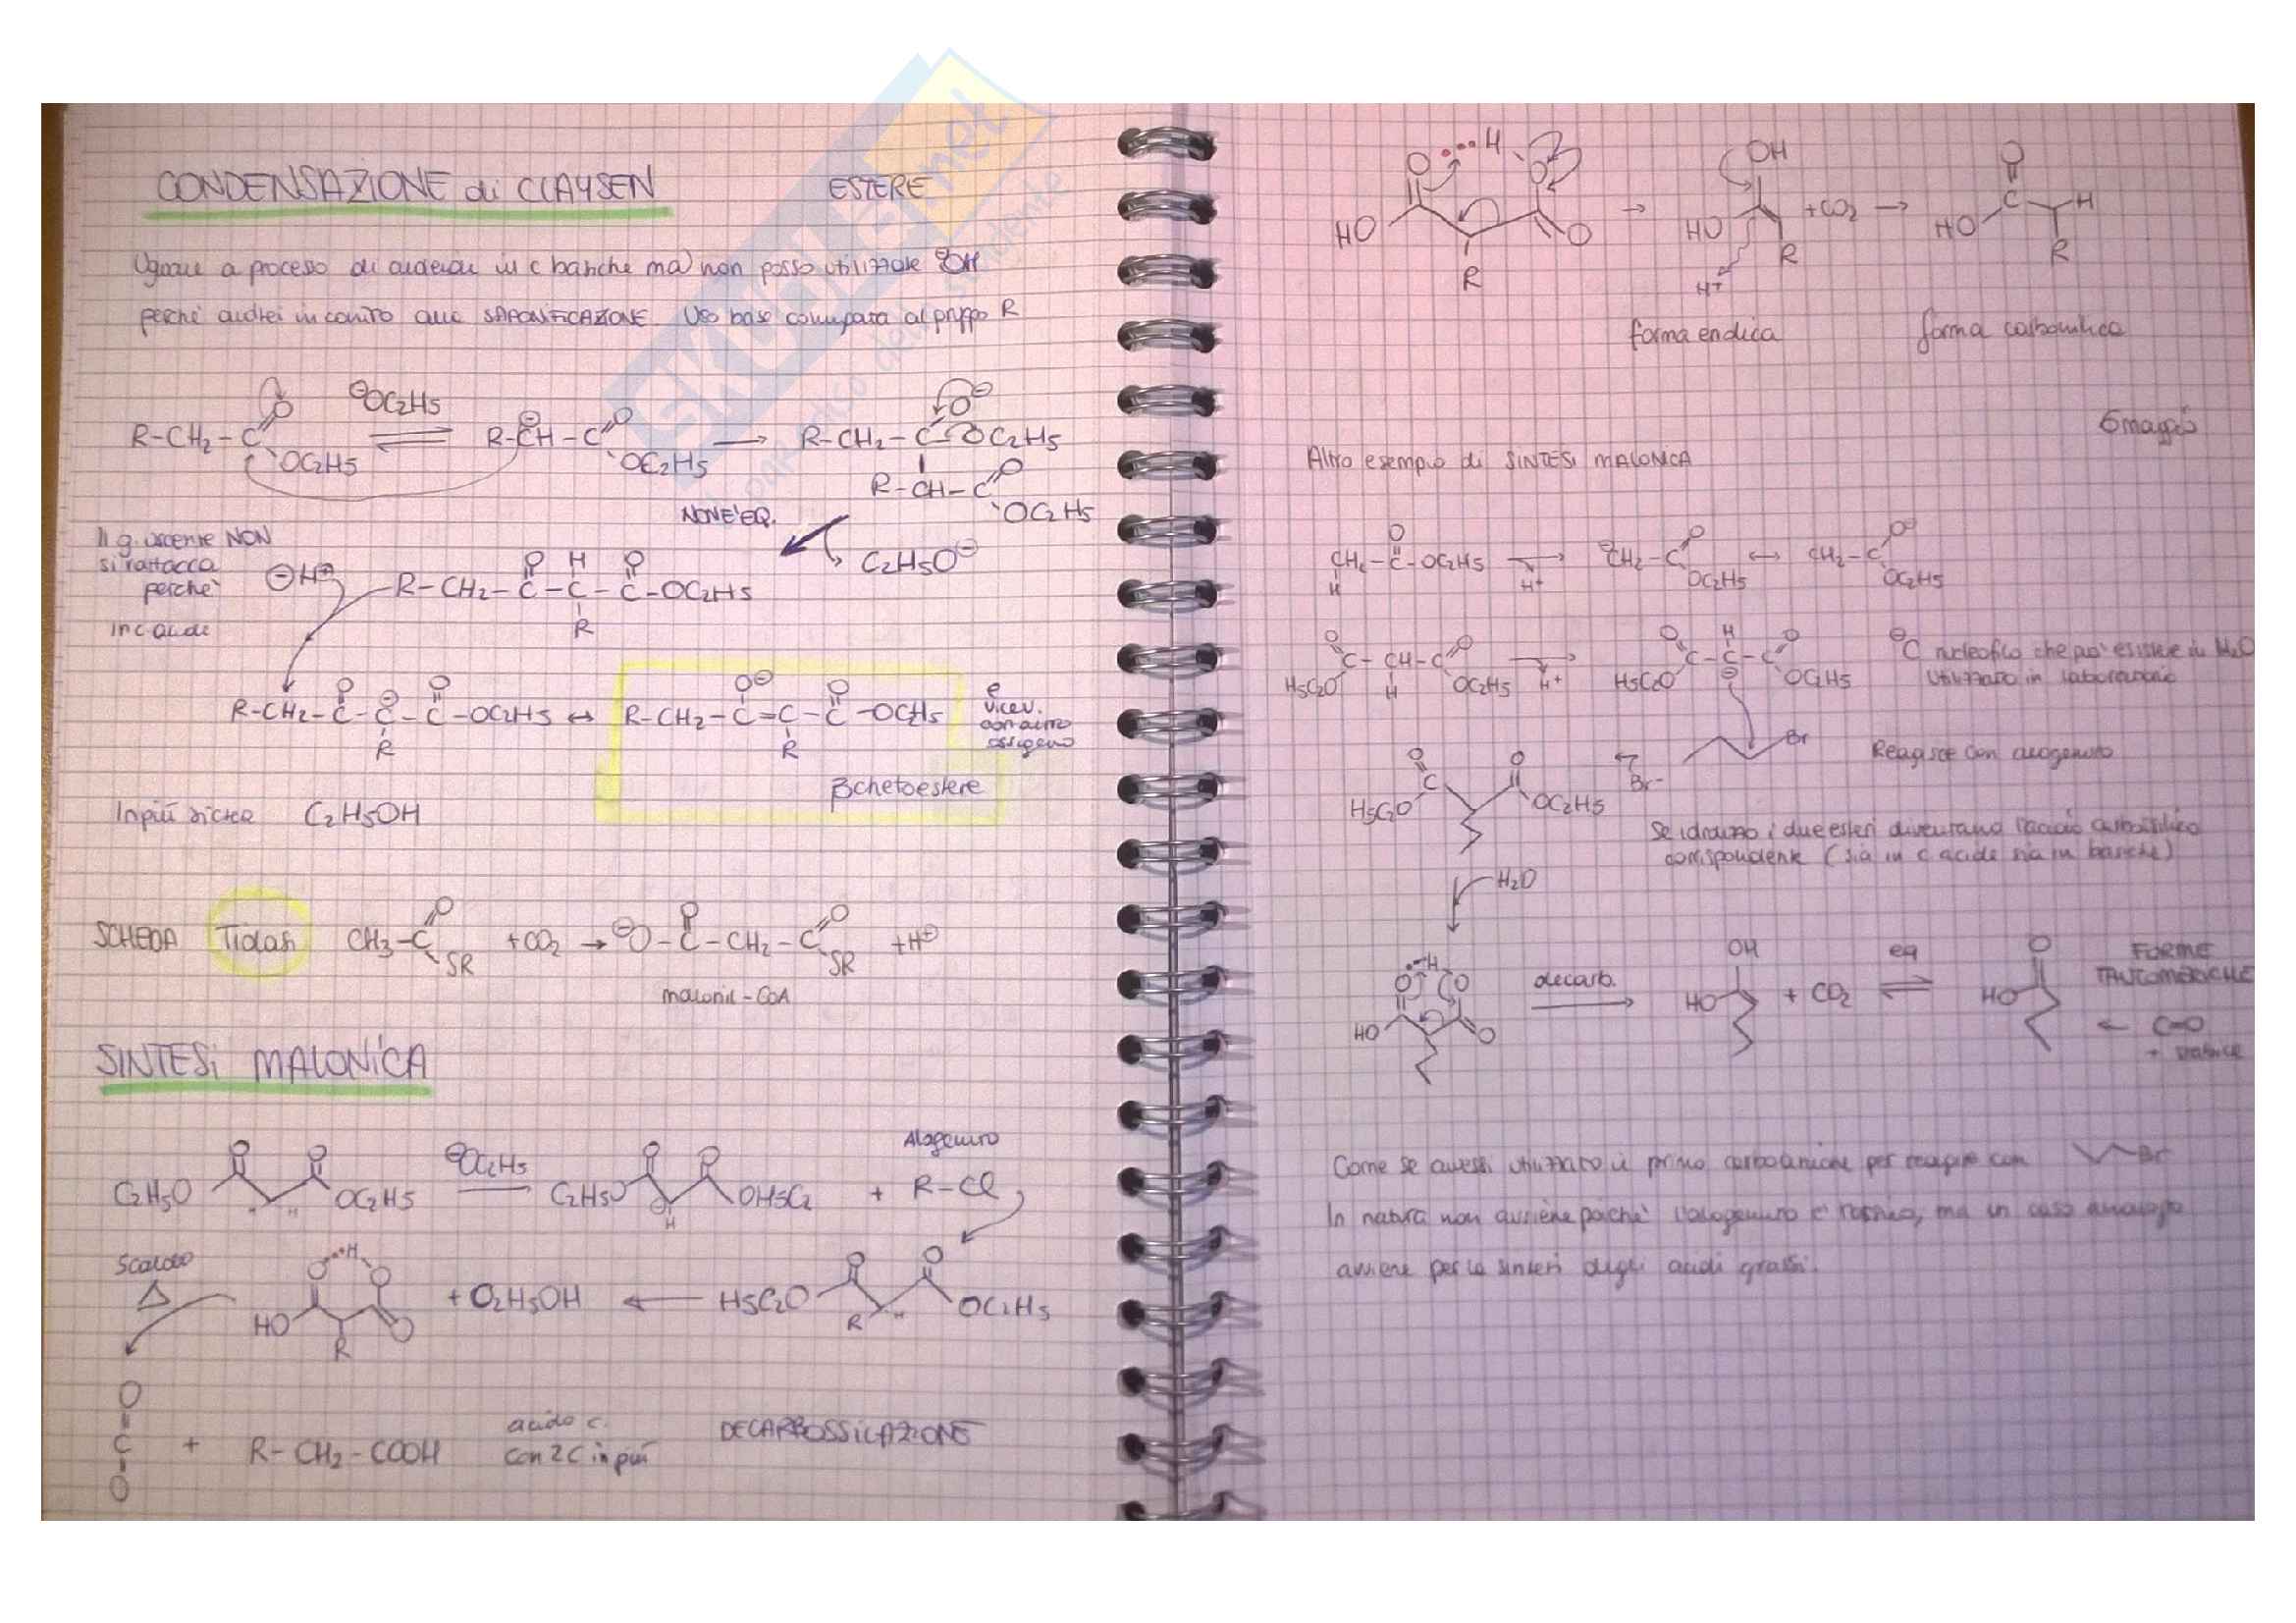 CONDENSAZIONE di CLAYSEN
ESTERE
Uguale a processo di aldeidi in c basiche ma non posso utilizzare ⊖OH
perché andrei incontro alla SAPONIFICAZIONE. Uso base coniugata al gruppo R
⊖OC2H5
R-CH2-C=O OC2H5 ⇌ R-⊖CH-C=O OC2H5 → R-CH2-C-OC2H5 O⊖
R-CH-C=O OC2H5
NON E' EQ.
Il g. uscente NON
si riattacca
perché
⊖H⊕
C2H5O⊖
R-CH2-C-C-C-OC2H5
O H O
R
in c acide
R-CH2-C-C-C-OC2H5 ↔ R-CH2-C=C-C-OC2H5
O ⊖ O O⊖ O
R R
e
vicev.
con altro
ossigeno
βchetoestere
In più si crea C2H5OH
SCHEDA Tiolasi CH3-C=O SR +CO2 → ⊖O-C-CH2-C=O SR +H⊕
malonil-CoA
SINTESI MALONICA
Alogenuro
C2H5O O O OC2H5 ⊖OC2H5 C2H5O O O ⊖ H OH5C2 + R-Cl
Scaldo
Δ
HO O H O O R + C2H5OH ← H5C2O O O R H OC2H5
O=C=O + R-CH2-COOH
acido c.
con 2C in più
DECARBOSSILAZIONE
HO O H O O R → OH HO R H+ +CO2 → O C HO H R
forma enolica
forma carbonilica
6 maggio
Altro esempio di SINTESI MALONICA
CH2-C-OC2H5 O H → H+ ⊖CH2-C=O OC2H5 ↔ CH2-C O⊖ OC2H5
H5C2O O C-CH-C=O H OC2H5 → H+ H5C2O O C-C-C=O H ⊖ OC2H5
⊖C nucleofilo che può esistere in H2O
Utilizzato in laboratorio
Br
Reagisce con alogenuro
Br-
O C H5C2O O OC2H5
Se idrolizzo i due esteri diventano l'acido carbossilico
corrispondente (sia in c acide sia in basiche)
H2O
HO O H O O decarb. → OH HO + CO2 eq ⇌ O HO
FORME
TAUTOMERICHE
← C=O
+ stabile
Come se avessi utilizzato il primo carbanione per reagire con Br
In natura non avviene poiché l'alogenuro è tossico, ma in caso analogo
avviene per la sintesi degli acidi grassi.